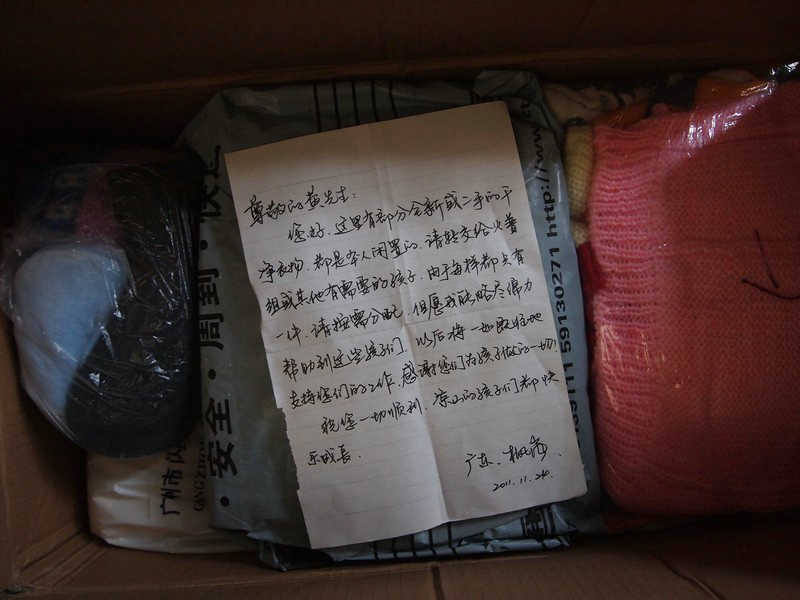 尊敬的黄先生:
您好.这里有部分全新或二手的干
净衣物.都是本人闲置的.请转交给火普
组或其他有需要的孩子.由于每样都只有
一件.请按需分配.但愿我能略尽绵力
帮助到这些孩子们.以后将一如既往地
支持您们的工作.感谢您们为孩子做的一切!
祝您一切顺利.凉山的孩子们都快
乐成长.
广东.
2011.11.24.
安全·周到·快
http://www.
59130271
广州市闪
QINGZHOU